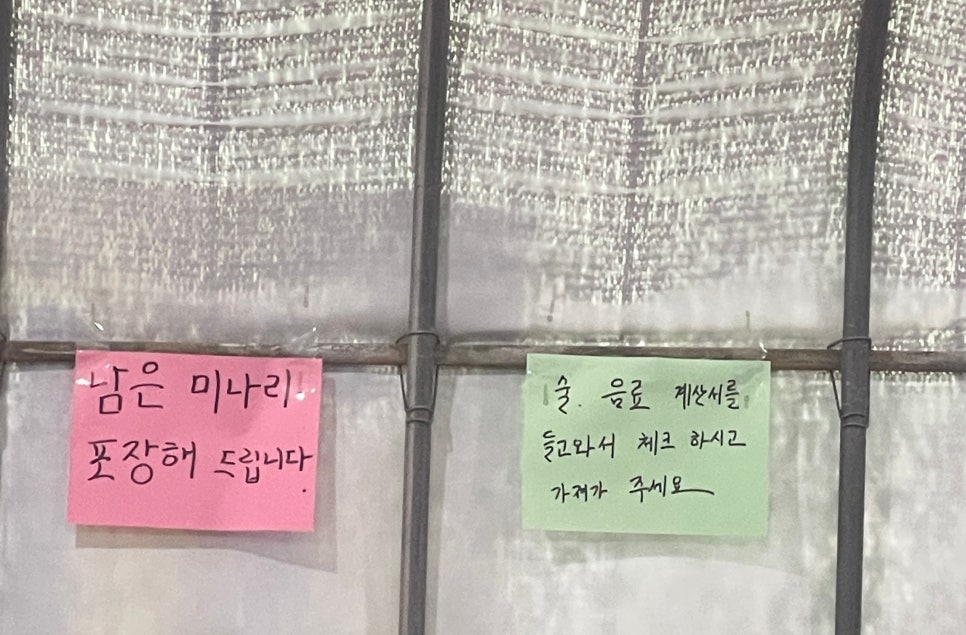 남은 미나리
포장해 드립니다.
술. 음료 계산서를
들고와서 체크 하시고
가져가 주세요